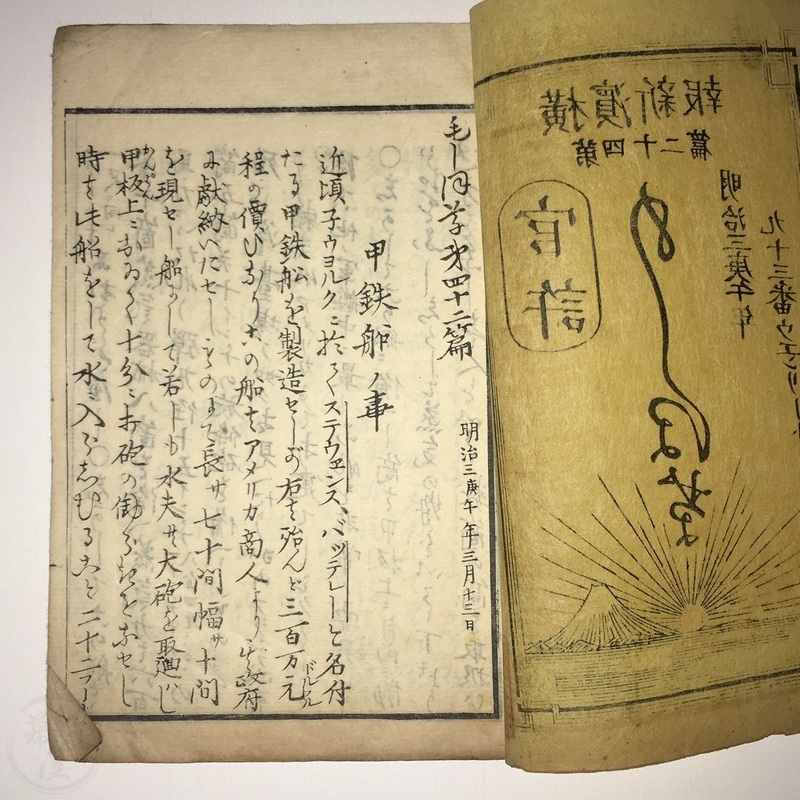 もしほ草第四十二篇
明治三庚午年三月十三日
甲鉄船ノ事
近頃子ウヨルクニ於てステウヱンス、バッテレーと名付
たる甲鉄船を製造セしが右を殆んど三百万元
ドルラル
程の價ひなり此の船はアメリカ商人より其政府
に献納いたセしものにて長サ七十間幅サ十間
を現セし船にして若しも水夫
大砲を
甲板上に
かんぱん
十分に
時は此船をして水に入らしむること二十二フ
横濱新報
第四十二篇
官許
もしほ草
明治三庚午年
九十三番ウエンリ